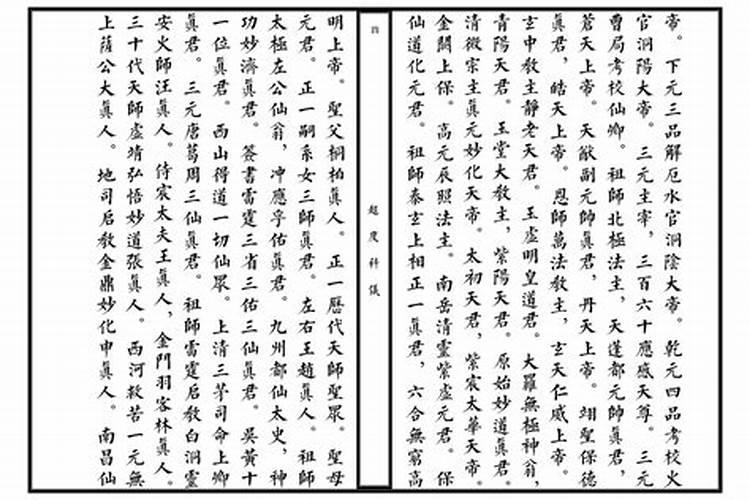 帝。下元三品解厄水官洞陰大帝。乾元四品考校火
官洞陽大帝。三元主宰，三百六十應感天尊。三元
曹局考校仙卿。祖師北極法主，天蓬都元帥真君，
蒼天上帝。天猷副元帥真君，丹天上帝。翊聖保德
真君，皓天上帝。恩師萬法教主，玄天仁威上帝。
玄中教主靜老天君。玉虛明皇道君。大羅無極神翁，
青陽天君。玉堂大教主，紫陽天君。原始妙道真君。
清微宗主真元妙化天帝。太初天君，紫宸太華天帝。
金闕上保。高元辰照法主。南岳清靈紫虛元君。保
仙道化元君。祖師泰玄上相正一真君，六合無窮高
四
超度科儀
明上帝。聖父桐柏真人。正一曆代天師聖眾。聖母
元君。正一嗣系女三師真君。左右王趙真人。祖師
太極左公仙翁，冲應孚佑真君。九州都仙太史，神
功妙濟真君。簽書雷霆三省三佑三仙真君。吳黃十
一位真君。西山得道一切仙眾。上清三茅司命上卿
真君。三元唐葛周三仙真君。祖師雷霆启教白洞靈
安火師汪真人。侍宸太夫王真人，金門羽客林真人。
三十代天師虛靖弘悟妙道張真人。西河救苦一元無
上薩公大真人。地司启教金鼎妙化申真人。南昌仙